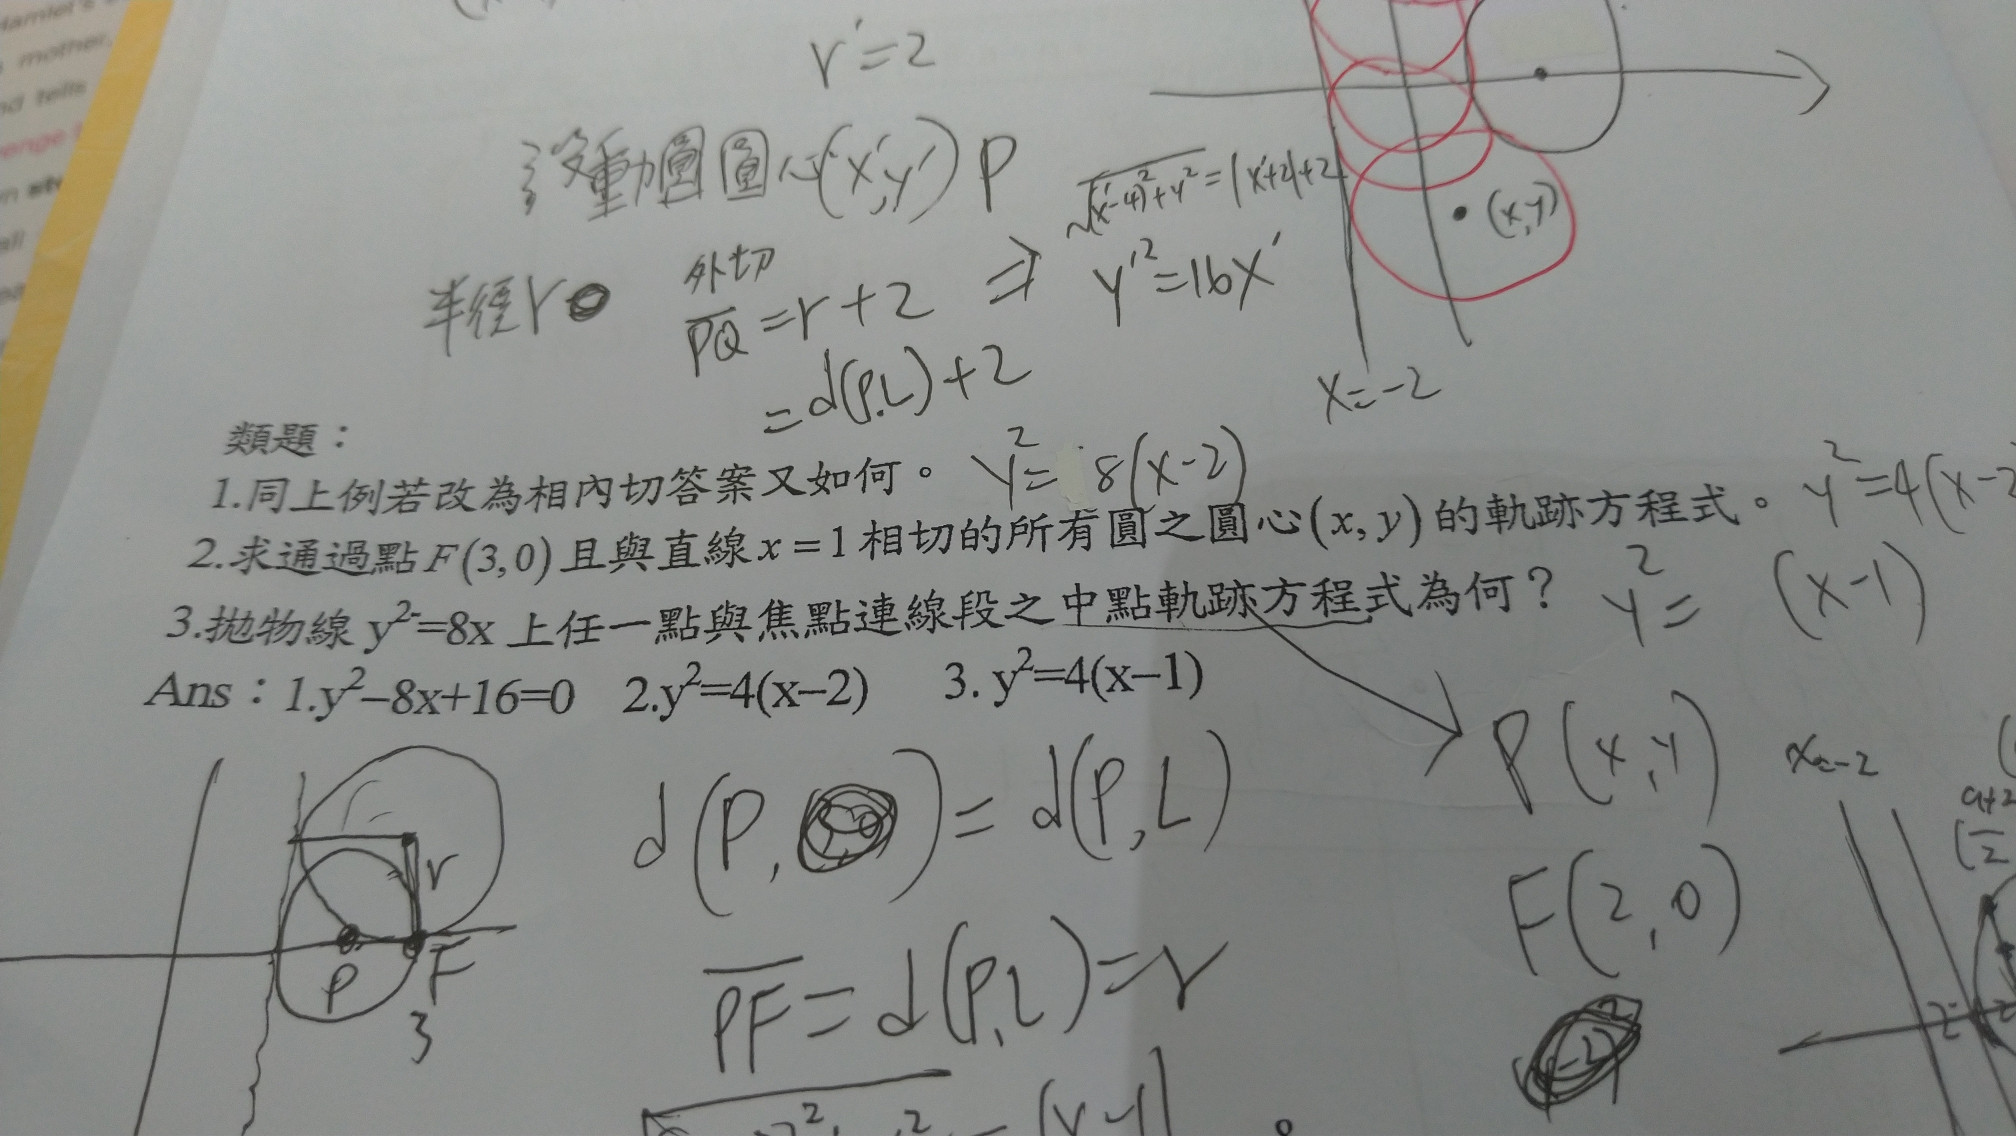 mother,
nd tells
r'=2
設動圓圓心(x',y') P
√(x'-4)²+y'²=|x'+2|+2
(x,y)
半徑r
外切
PQ=r+2 ⇒ y'²=16x'
=d(P,L)+2
x=-2
類題：
1.同上例若改為相內切答案又如何。 y²=8(x-2)
2.求通過點F(3,0)且與直線x=1相切的所有圓之圓心(x,y)的軌跡方程式。 y²=4(x-2
3.拋物線y²=8x上任一點與焦點連線段之中點軌跡方程式為何？ y²= (x-1)
Ans：1.y²–8x+16=0 2.y²=4(x–2) 3. y²=4(x–1)
P(x,y)
x=-2
d(P, )=d(P,L)
r
F(2,0)
P F
3
PF=d(P,L)=r